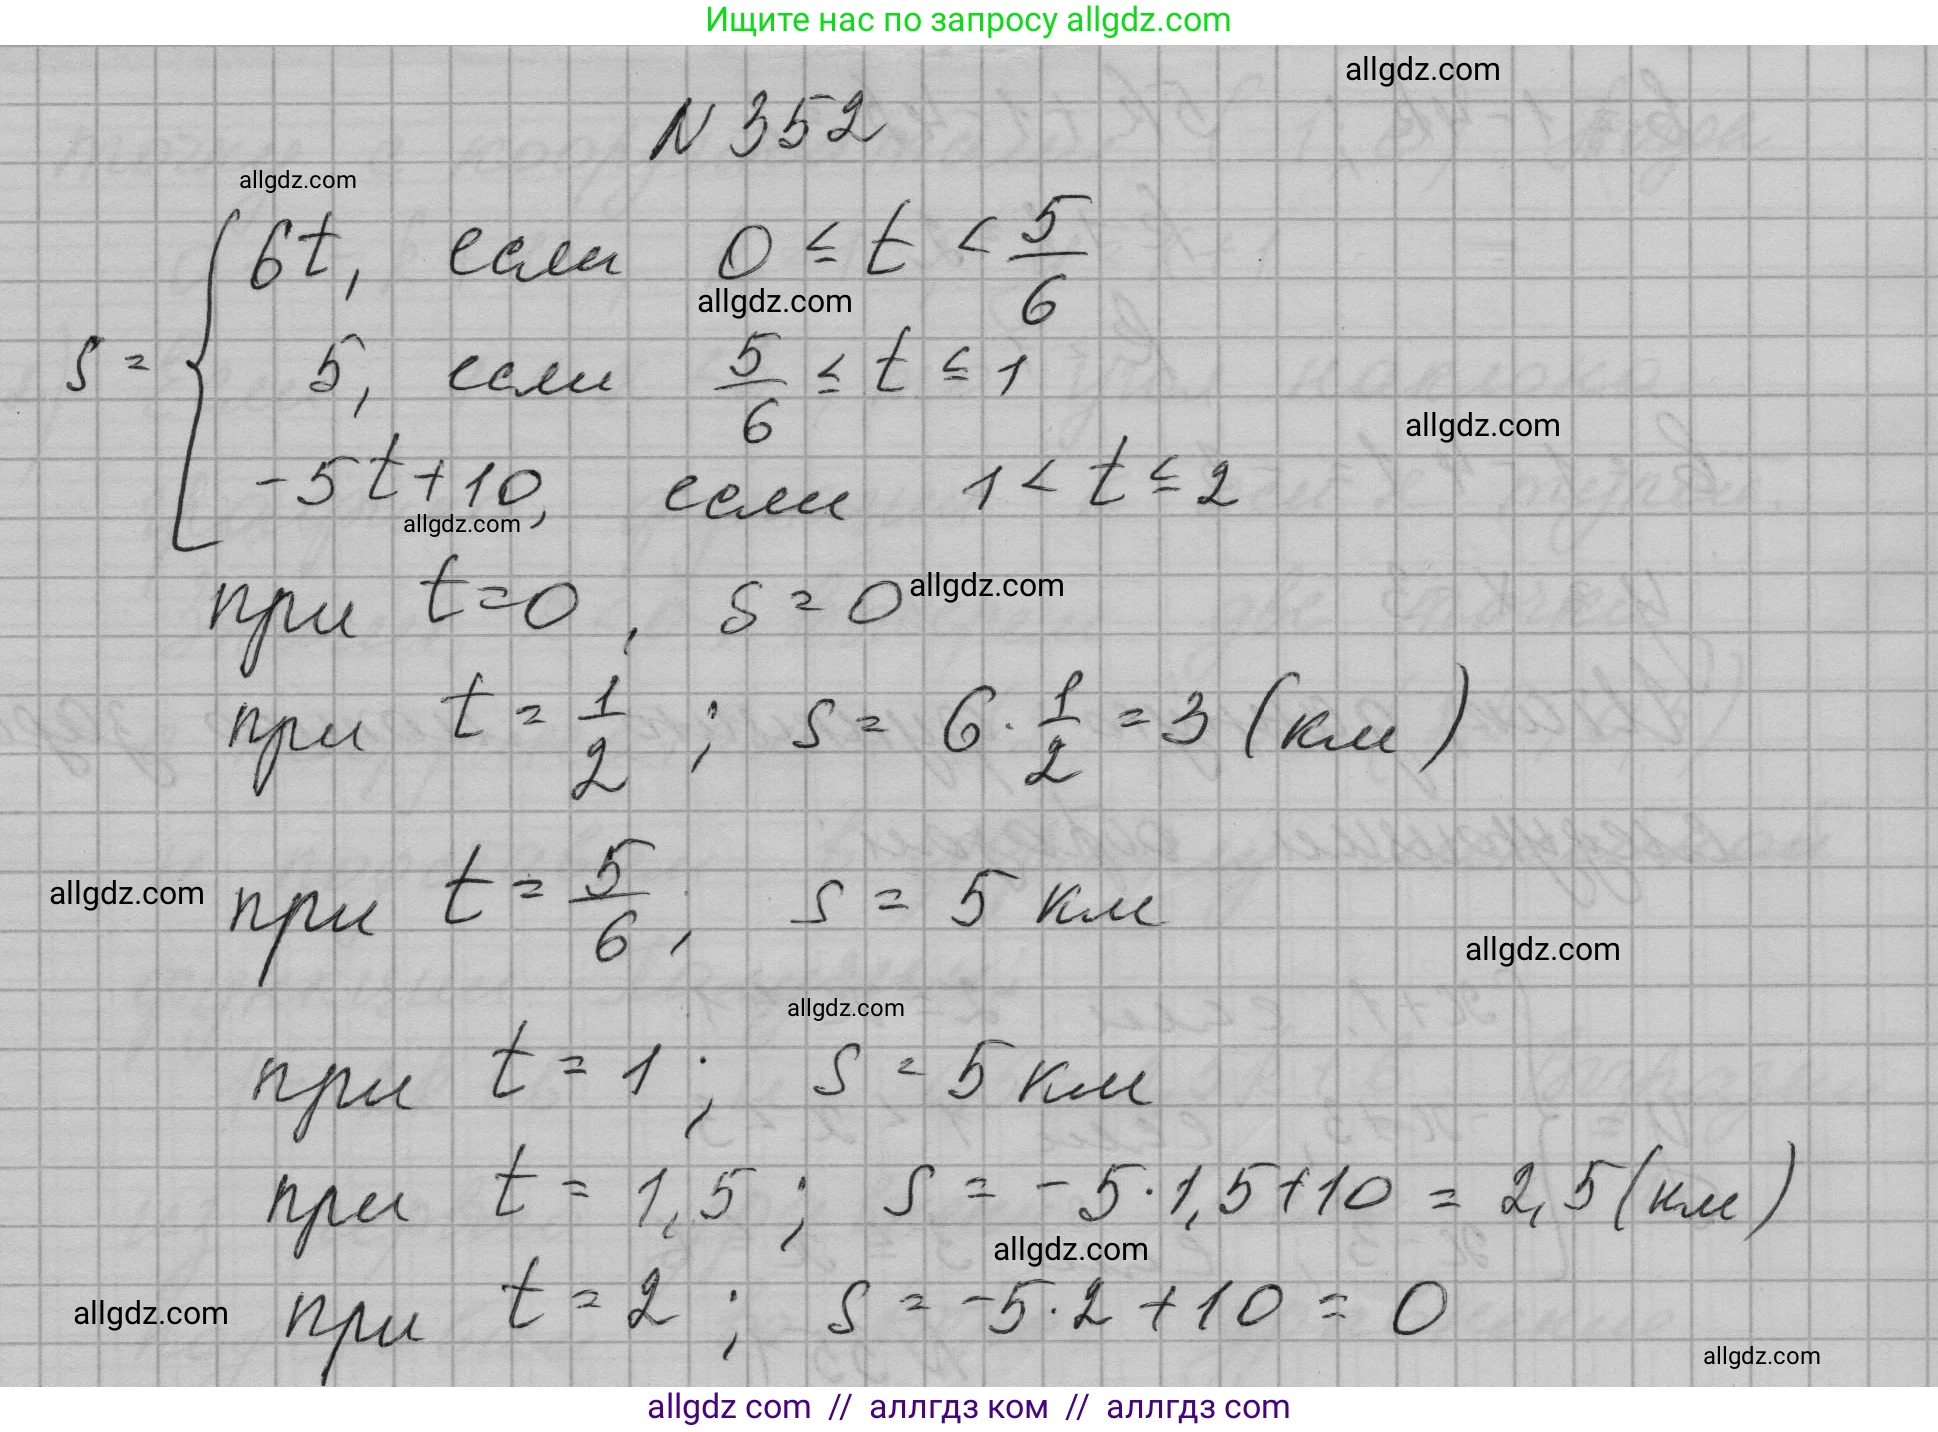 Ищите нас по запросу allgdz.com
allgdz.com
N 352
allgdz.com
6t, если 0 ≤ t < 5/6
allgdz.com
s = { 5, если 5/6 ≤ t ≤ 1
allgdz.com
-5t+10, если 1 < t ≤ 2
allgdz.com
при t=0, s=0
allgdz.com
при t = 1/2 ; s = 6 · 1/2 = 3 (км)
при t = 5/6; s = 5 км
allgdz.com
allgdz.com
allgdz.com
при t = 1; s = 5 км
при t = 1,5; s = -5·1,5+10 = 2,5 (км)
allgdz.com
при t = 2; s = -5·2+10 = 0
allgdz.com
allgdz.com
allgdz com // аллгдз ком // аллгдз com